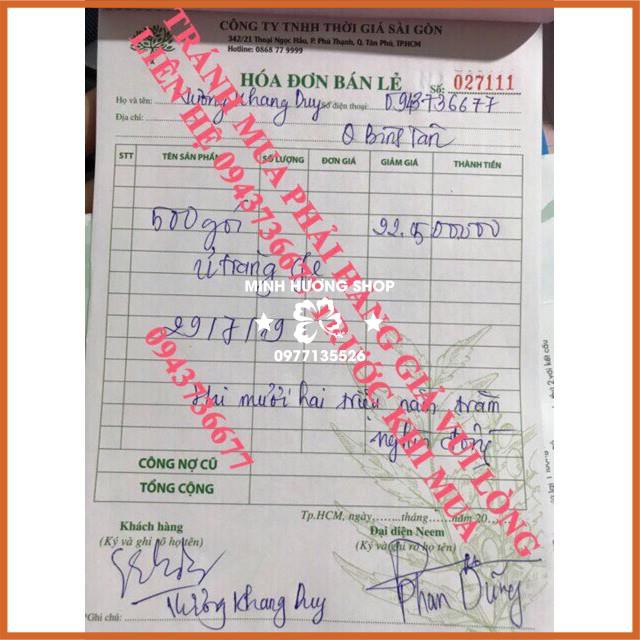 CÔNG TY TNHH THỜI GIÁ SÀI GÒN
342/21 Thoại Ngọc Hầu, P. Phú Thạnh, Q. Tân Phú, TP.HCM
Hotline: 0868 77 9999
HÓA ĐƠN BÁN LẺ
Số: 027111
Họ và tên: Khang Duy Số điện thoại: 0943736677
Địa chỉ:
Q Bình Tân
STT TÊN SẢN PHẨM SỐ LƯỢNG ĐƠN GIÁ GIẢM GIÁ THÀNH TIỀN
500 gói 22.500000
ủ trắng
MINH HƯƠNG SHOP
29/7/19
0977135526
mười hai triệu năm trăm
nghìn đồng
TRÁNH MUA PHẢI HÀNG GIẢ VUI LÒNG
LIÊN HỆ 0943736677 TRƯỚC KHI MUA
0943736677
CÔNG NỢ CŨ
TỔNG CỘNG
Tp.HCM, ngày........tháng........năm 20
Khách hàng Đại diện Neem
(Ký và ghi rõ họ tên) (Ký và ghi rõ họ tên)
Khang Duy Phan Dũng
*Ghi chú: